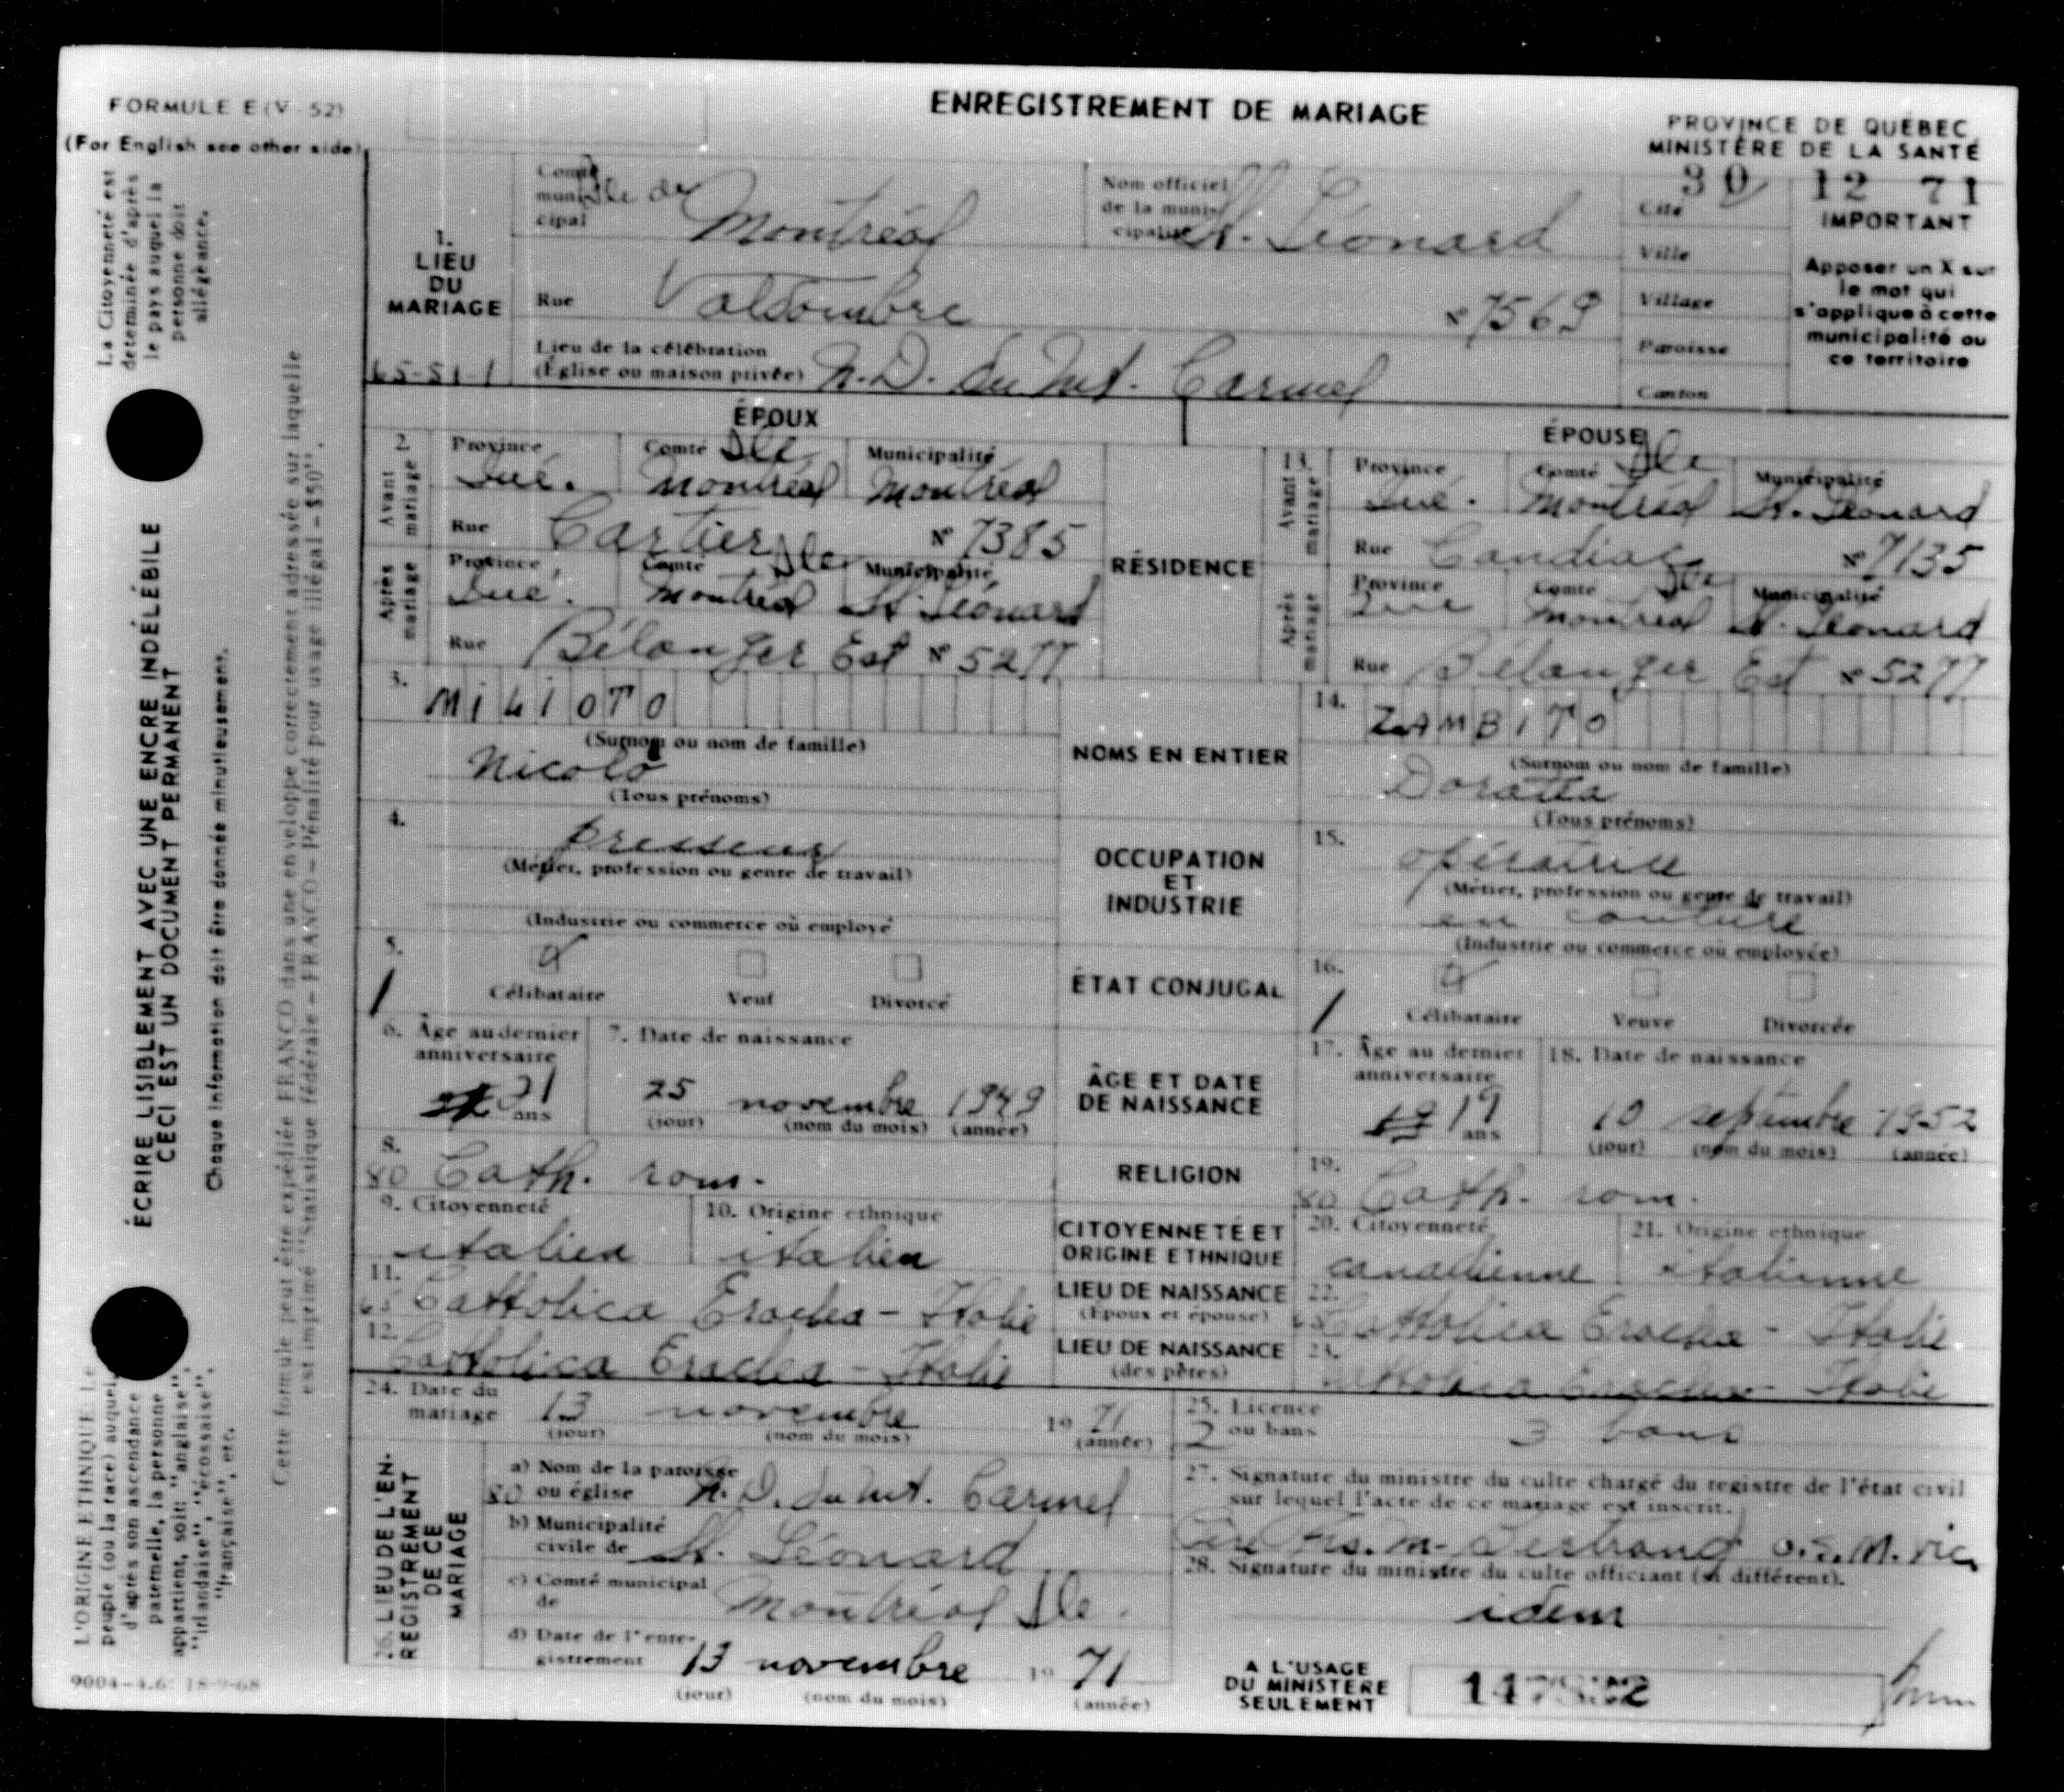 FORMULE E (V - 52)
(For English see other side)
ENREGISTREMENT DE MARIAGE
PROVINCE DE QUÉBEC
MINISTÈRE DE LA SANTÉ
30 12 71
La Citoyenneté est
déterminée d'après
le pays auquel la
personne doit
allégeance.
ÉCRIRE LISIBLEMENT AVEC UNE ENCRE INDÉLÉBILE
CECI EST UN DOCUMENT PERMANENT
Chaque information doit être donnée minutieusement.
Cette formule peut être expédiée FRANCO dans une enveloppe correctement adressée sur laquelle
est imprimé "Statistique fédérale – FRANCO – Pénalité pour usage illégal – $50".
L'ORIGINE ETHNIQUE: Le
peuple (ou la race) auquel,
d'après son ascendance
paternelle, la personne
appartient, soit: "anglaise",
"irlandaise", "écossaise",
"française", etc.
1. LIEU DU MARIAGE
65-51-1
Comté municipal Ile de Montréal
Nom officiel de la municipalité St. Léonard
Rue Valdombre N° 7569
Lieu de la célébration
(Église ou maison privée) N.D. du Mt. Carmel
Cité
Ville
Village
Paroisse
Canton
IMPORTANT
Apposer un X sur
le mot qui
s'applique à cette
municipalité ou
ce territoire
ÉPOUX
ÉPOUSE
RÉSIDENCE
2. Avant mariage
Province Qué. Comté Ile Montréal Municipalité Montréal
Rue Cartier N° 7385
Après mariage
Province Qué. Comté Ile Montréal Municipalité St. Léonard
Rue Bélanger Est N° 5277
13. Avant mariage
Province Qué. Comté Ile Montréal Municipalité St. Léonard
Rue Candiac N° 7135
Après mariage
Province Qué Comté Ile Montréal Municipalité St. Léonard
Rue Bélanger Est N° 5277
NOMS EN ENTIER
3. MILIOTO
(Surnom ou nom de famille)
Nicolo
(Tous prénoms)
14. ZAMBITO
(Surnom ou nom de famille)
Doratea
(Tous prénoms)
OCCUPATION
ET
INDUSTRIE
4. presseur
(Métier, profession ou genre de travail)
(Industrie ou commerce où employé
15. opératrice
(Métier, profession ou genre de travail)
en couture
(Industrie ou commerce où employée)
ÉTAT CONJUGAL
5. 1 Célibataire Veuf Divorcé
16. 1 Célibataire Veuve Divorcée
ÂGE ET DATE
DE NAISSANCE
6. Âge au dernier anniversaire 21 ans
7. Date de naissance
25 novembre 1949
(jour) (nom du mois) (année)
17. Âge au dernier anniversaire 19 ans
18. Date de naissance
10 septembre 1952
(jour) (nom du mois) (année)
RELIGION
8. 80 Cath. rom.
19. 80 Cath. rom.
CITOYENNETÉ ET
ORIGINE ETHNIQUE
9. Citoyenneté italien
10. Origine ethnique italien
20. Citoyenneté canadienne
21. Origine ethnique italienne
LIEU DE NAISSANCE
(Époux et épouse)
11. Cattolica Eraclea - Italie
22. Cattolica Eraclea - Italie
LIEU DE NAISSANCE
(des pères)
12. Cattolica Eraclea - Italie
23. Cattolica Eraclea - Italie
24. Date du mariage 13 novembre 19 71
(jour) (nom du mois) (année)
25. Licence ou bans 2 3 bans
26. LIEU DE L'ENREGISTREMENT DE CE MARIAGE
a) Nom de la paroisse
80 ou église N.D. du Mt. Carmel
b) Municipalité
civile de St. Léonard
c) Comté municipal
de Montréal Ile.
d) Date de l'enregistrement 13 novembre 19 71
(jour) (nom du mois) (année)
27. Signature du ministre du culte chargé du registre de l'état civil
sur lequel l'acte de ce mariage est inscrit.
M. Bertrand o.s.m. vic.
28. Signature du ministre du culte officiant (si différent).
idem
A L'USAGE
DU MINISTÈRE
SEULEMENT